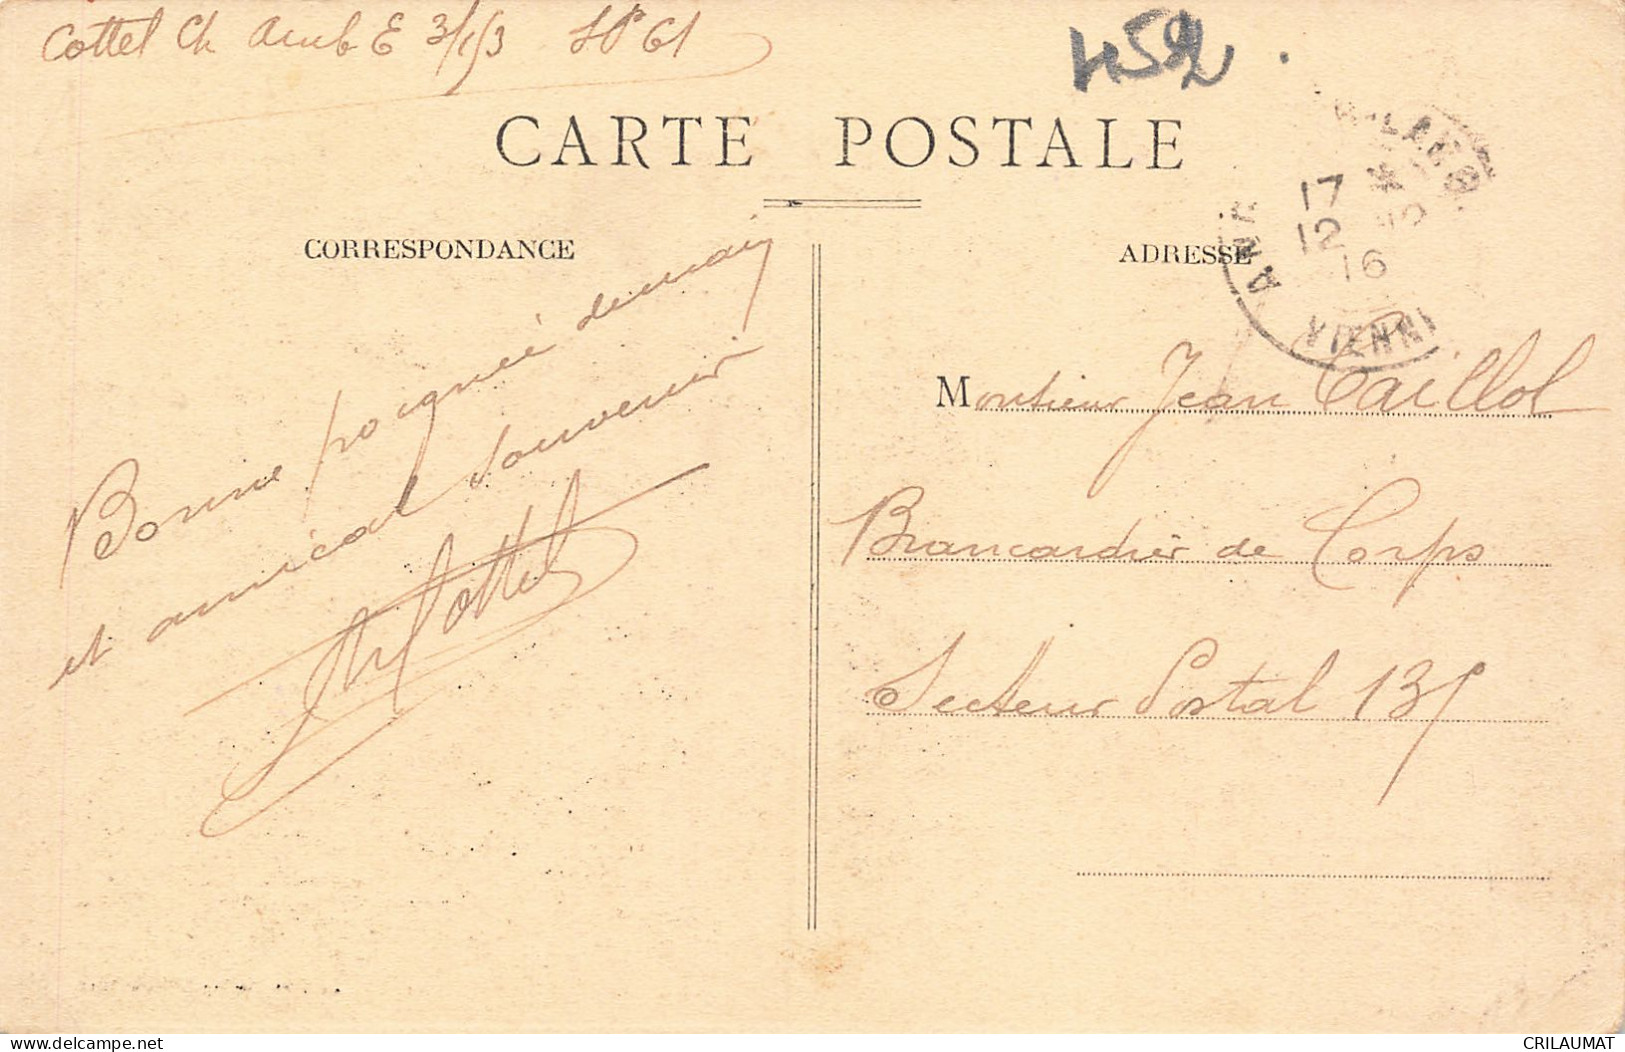 Cottel Ch Amb E 3/153 SP 61
4592
CARTE POSTALE
CORRESPONDANCE
ADRESSE
17
12
16
VIENNE
Bonne poignée de main
et amical souvenir
Ch Cottel
Monsieur Jean Caillol
Brancardier de Corps
Secteur Postal 135
delcampe.net
CRILAUMAT